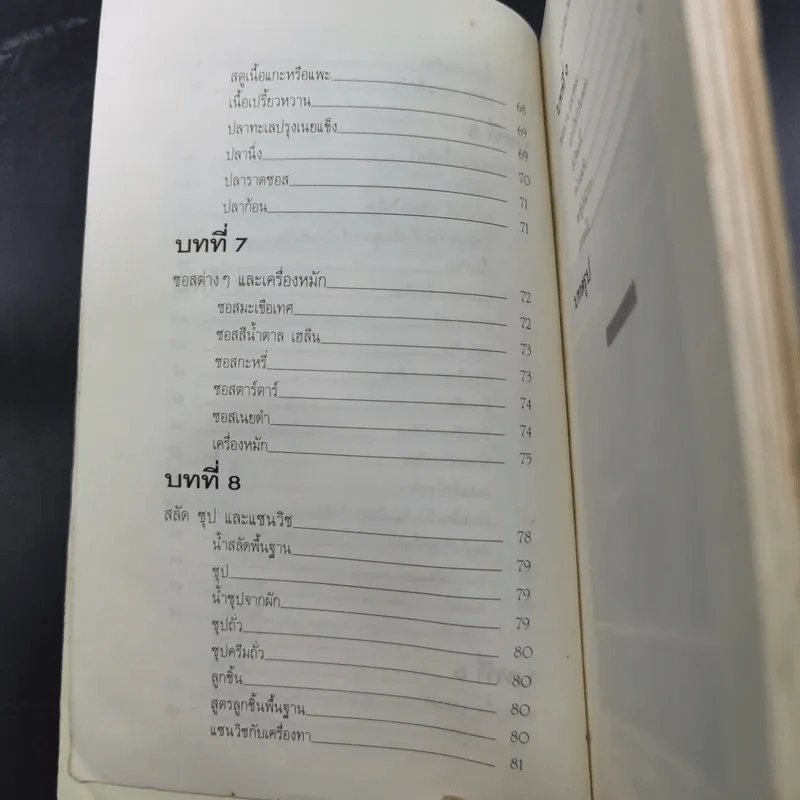 สตูเนื้อแกะหรือแพะ 68
เนื้อเปรี้ยวหวาน 69
ปลาทะเลปรุงเนยแข็ง 69
ปลานึ่ง 70
ปลาราดซอส 71
ปลาก้อน 71
บทที่ 7
ซอสต่างๆ และเครื่องหมัก 72
ซอสมะเขือเทศ 72
ซอสสีน้ำตาล เฮลีน 73
ซอสกะหรี่ 73
ซอสตาร์ตาร์ 74
ซอสเนยดำ 74
เครื่องหมัก 75
บทที่ 8
สลัด ซุป และแซนวิช 78
น้ำสลัดพื้นฐาน 79
ซุป 79
น้ำซุปจากผัก 79
ซุปถั่ว 80
ซุปครีมถั่ว 80
ลูกชิ้น 80
สูตรลูกชิ้นพื้นฐาน 80
แซนวิชกับเครื่องทา 81
บทสรุป